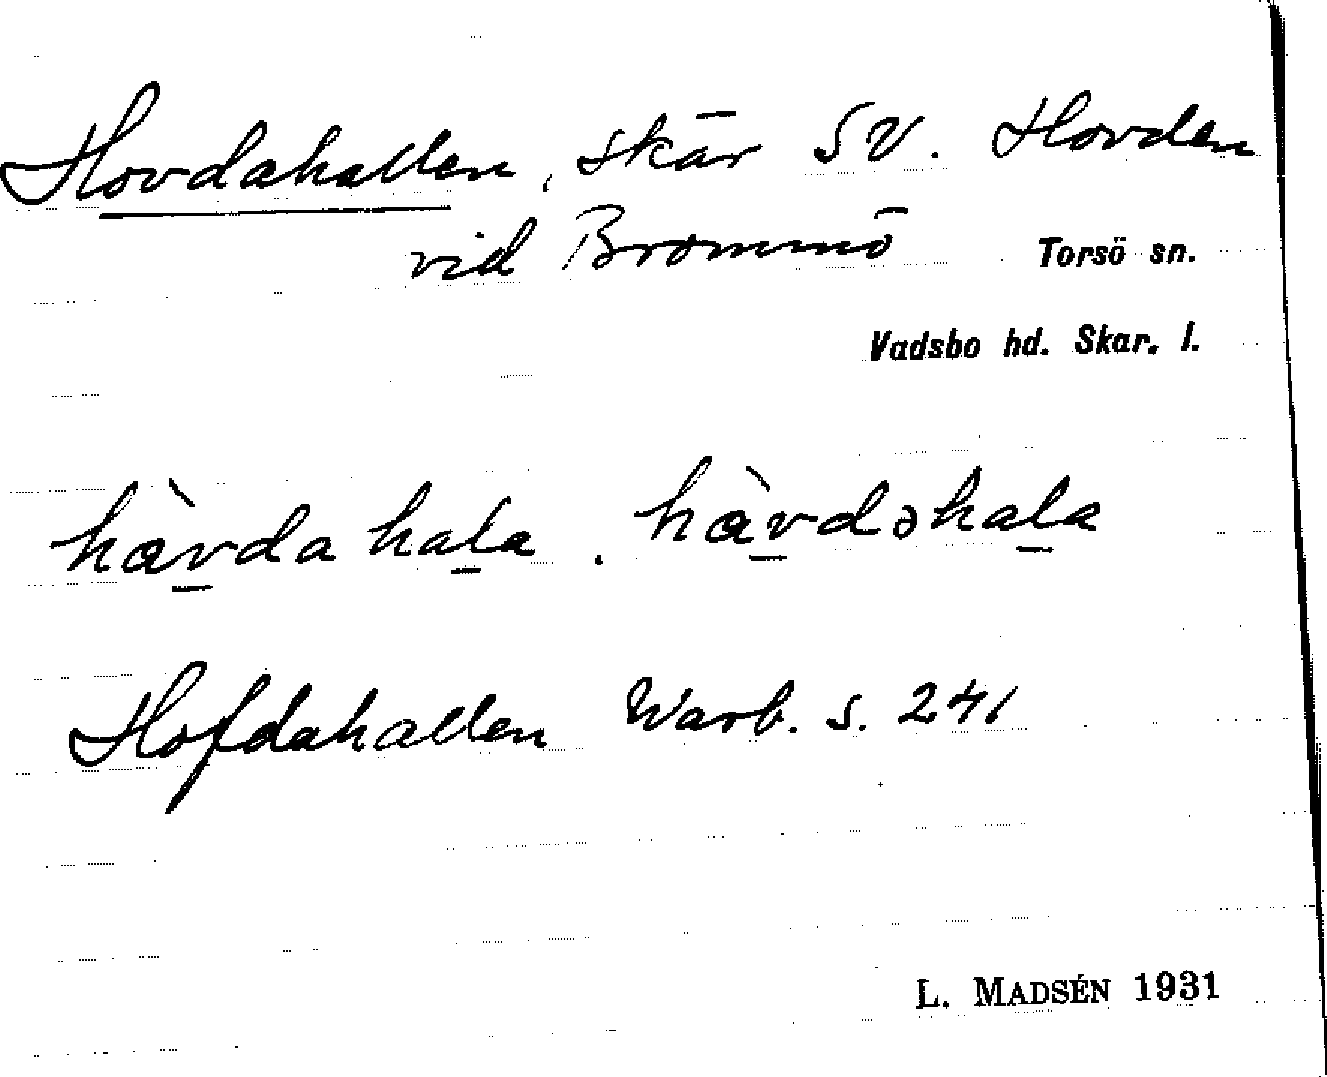 Hovdahallen, skär SV. Hovden
vid Brommö Torsö sn.
Vadsbo hd. Skar. l.
hàvdahala. hàvdəhala
Hofdahallen Warb. s. 241
L. MADSÉN 1931